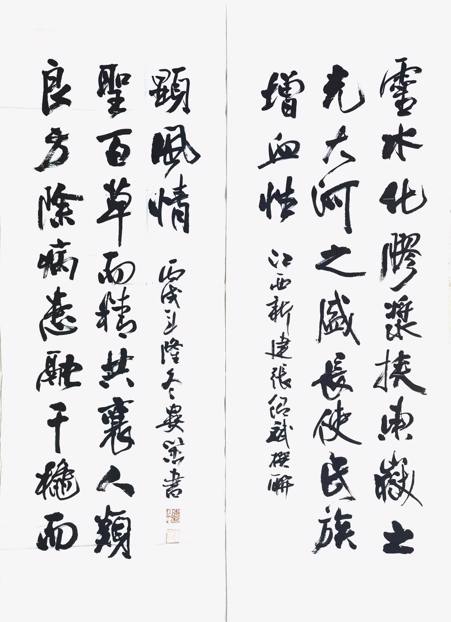 靈水化膠漿挾東嶽之
光大河之盛長使民族
增血性
江西新建張紹斌撰聯
良方除病患融千橘而
聖百草而精共襄人類
顯風情
丙戌 隆冬 書